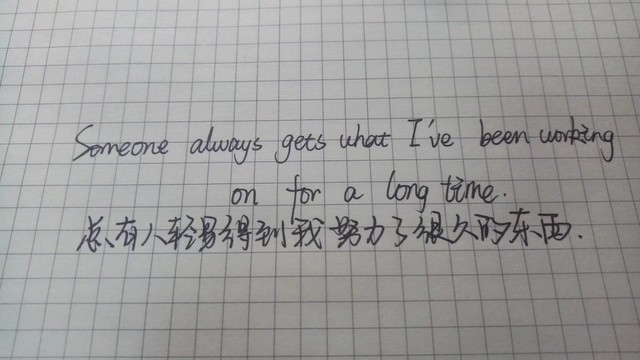 Someone always gets what I've been working
on for a long time.
总有人轻易得到我努力了很久的东西.